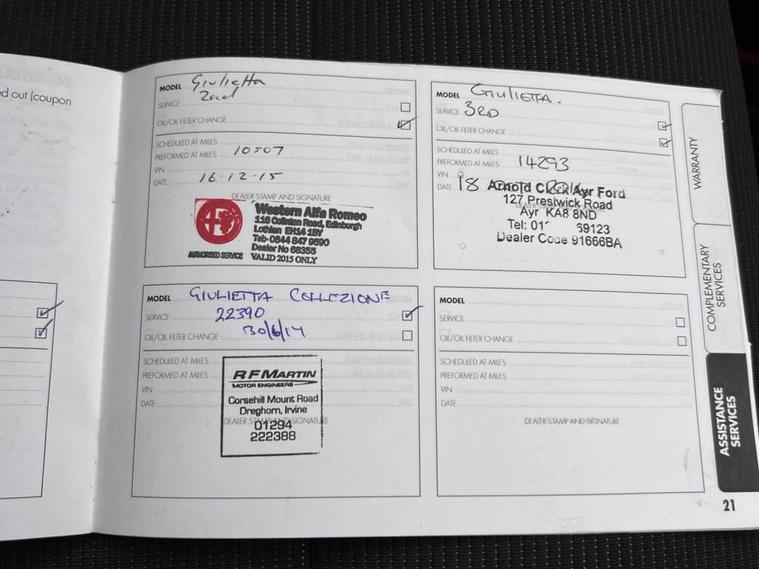 ed out (coupon
MODEL Giulietta
2nd
SERVICE
OIL/OIL FILTER CHANGE
SCHEDULED AT MILES
PREFORMED AT MILES 10507
VIN
DATE 16-12-15
DEALER STAMP AND SIGNATURE
Western Alfa Romeo
116 Colinton Road, Edinburgh
Lothian EH14 1BY
Tel: 0844 847 9590
Dealer No 68355
AUTHORISED SERVICE VALID 2015 ONLY
MODEL GIULIETTA.
SERVICE 3RD
OIL/OIL FILTER CHANGE
SCHEDULED AT MILES
PREFORMED AT MILES 14293
VIN
DATE 18
Arnold Clark Ayr Ford
127 Prestwick Road
Ayr KA8 8ND
Tel: 01 69123
Dealer Code 91666BA
MODEL GIULIETTA COLLEZIONE
SERVICE 22390
OIL/OIL FILTER CHANGE 30/6/17
SCHEDULED AT MILES
PREFORMED AT MILES
VIN
DATE
RF MARTIN
MOTOR ENGINEERS
Corsehill Mount Road
Dreghorn, Irvine
DEALER STAMP AND SIGNATURE
01294
222388
MODEL
SERVICE
OIL/OIL FILTER CHANGE
SCHEDULED AT MILES
PREFORMED AT MILES
VIN
DATE
DEALER STAMP AND SIGNATURE
WARRANTY
COMPLEMENTARY
SERVICES
ASSISTANCE
SERVICES
21